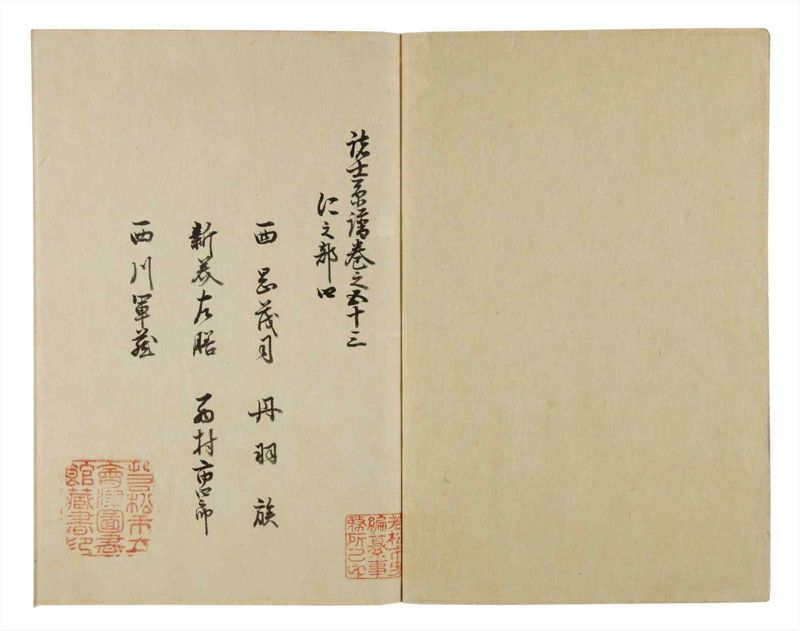 諸士系譜巻之五十三
仁之部 口
西 茂司 丹羽 族
新美左膳 西村
西川軍藏
若松市立
會津圖書
館藏書印
若松市史
編纂事
務所之印